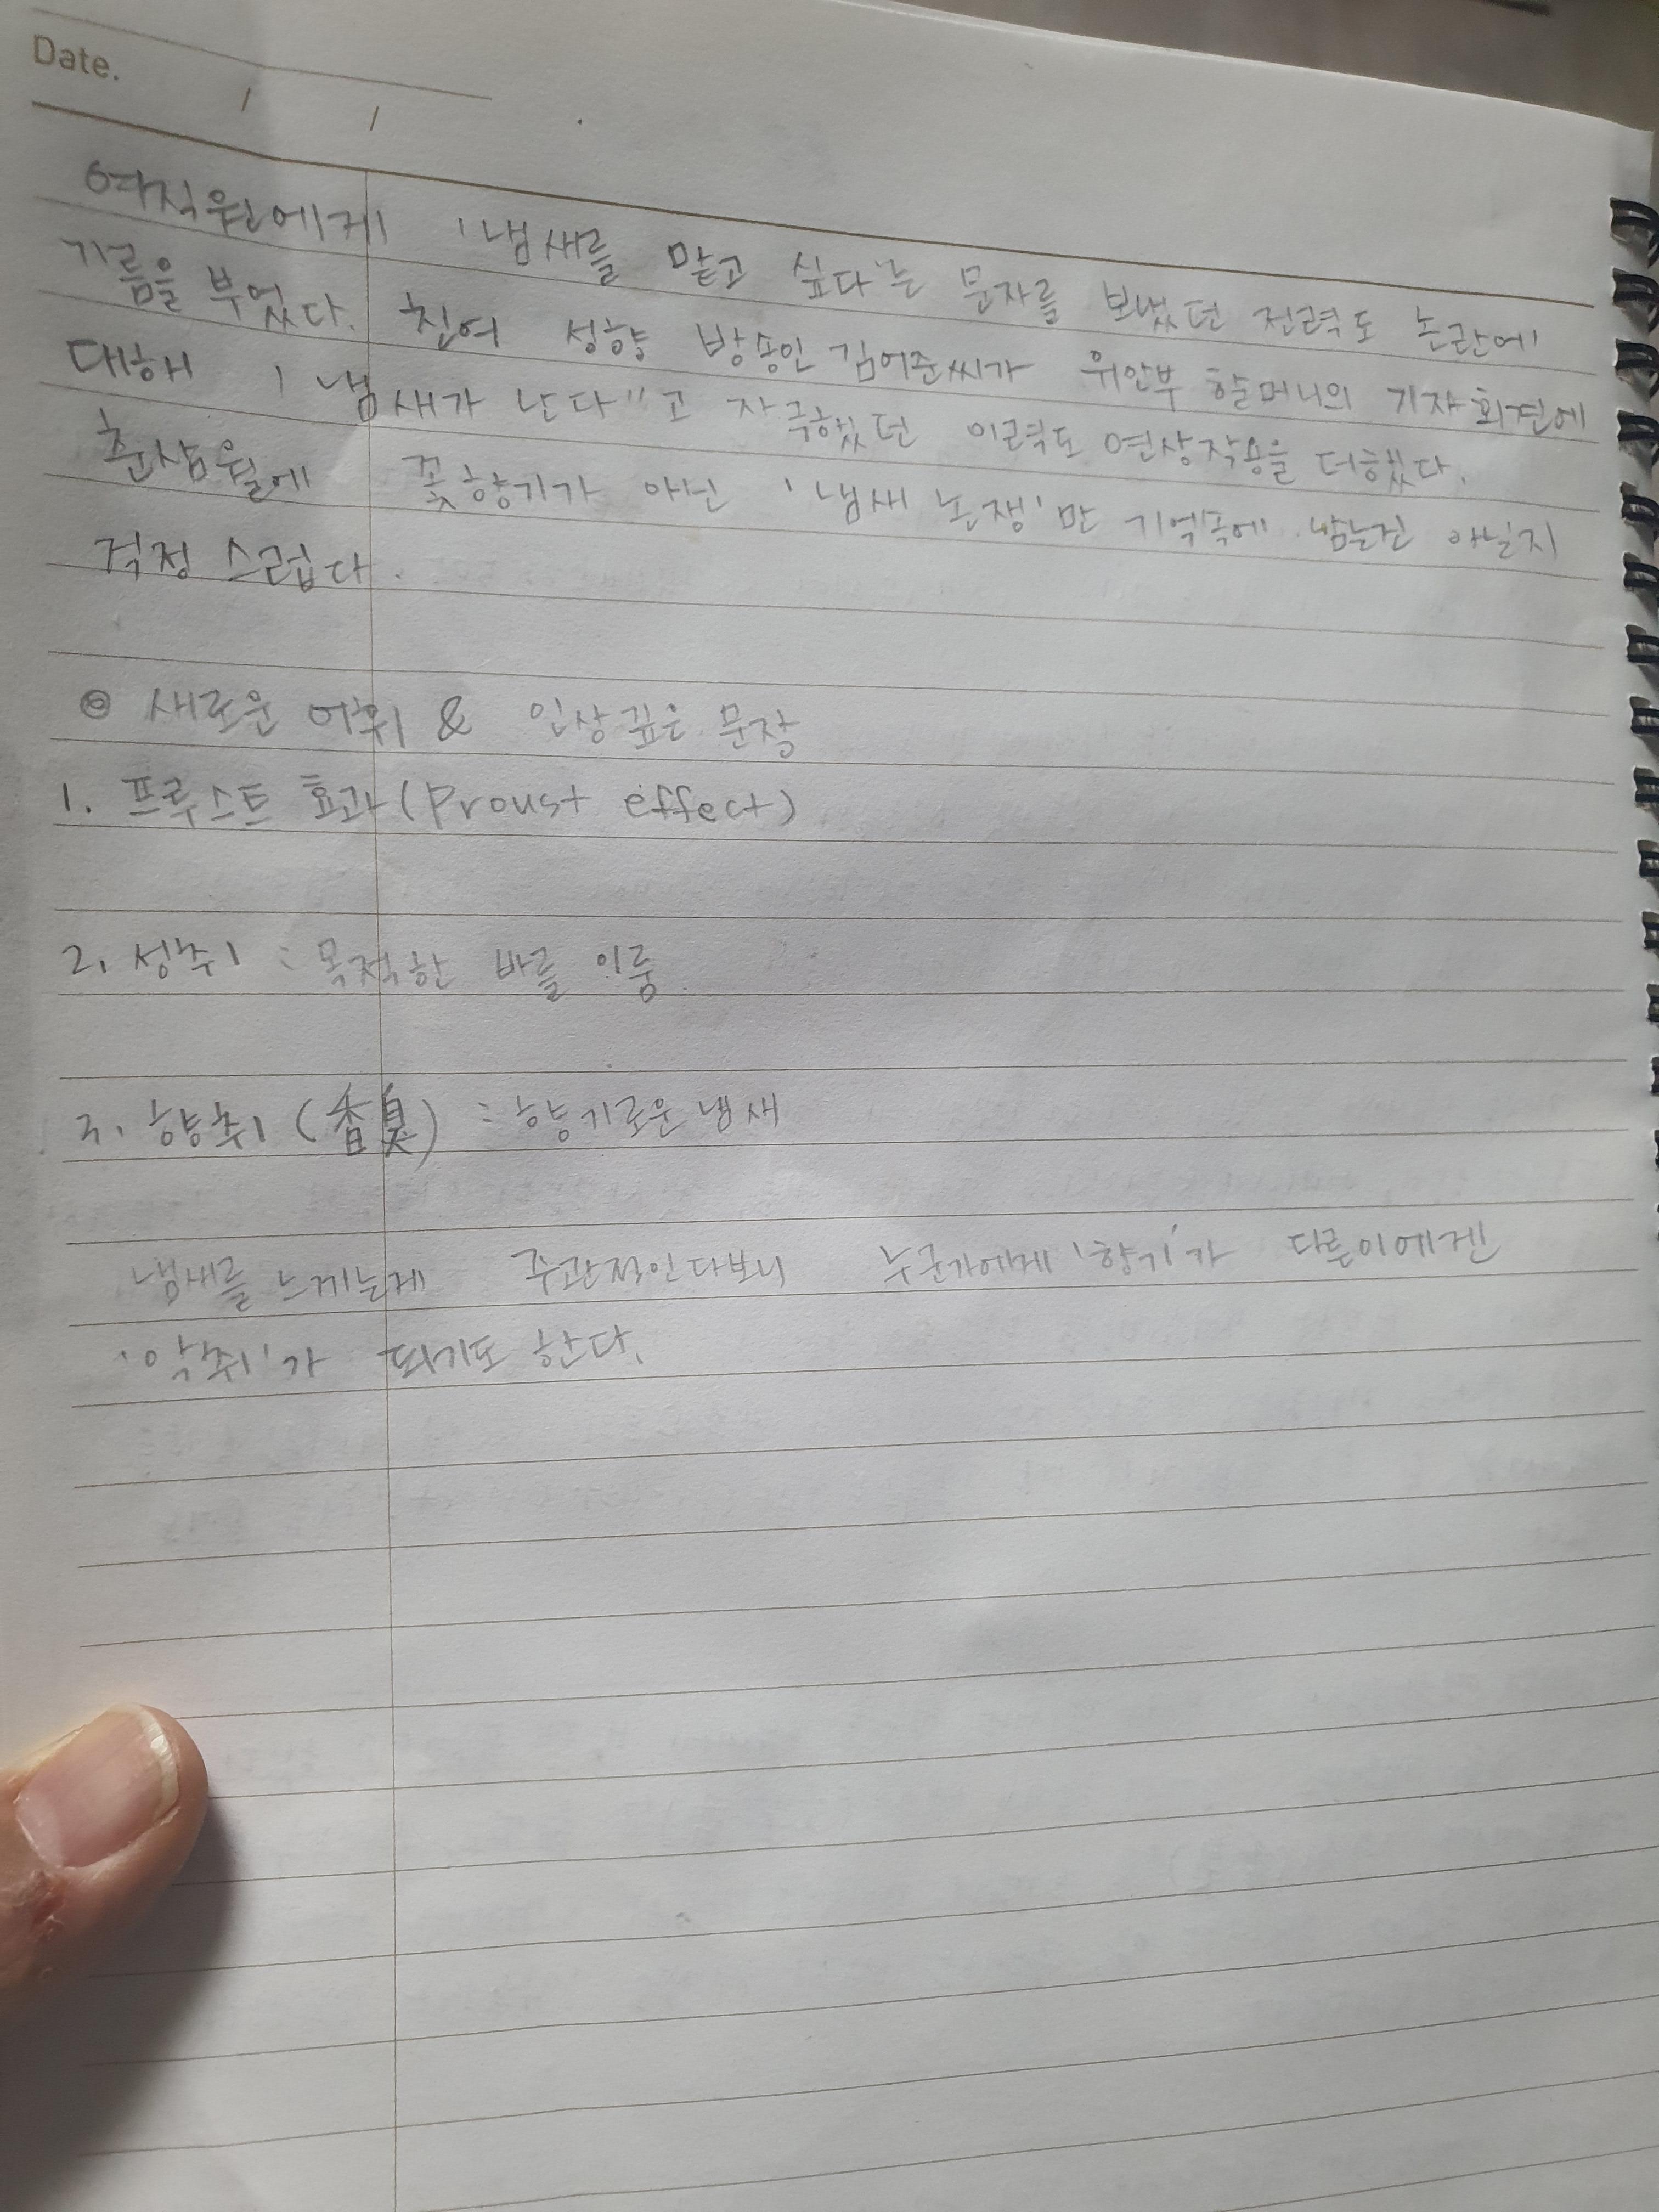 Date.
/ /
여직원에게 '냄새를 맡고 싶다'는 문자를 보냈던 전력도 논란에
기름을 부었다. 친여 성향 방송인 김어준씨가 위안부 할머니의 기자회견에
대해 '냄새가 난다"고 자극했던 이력도 연상작용을 더했다.
춘삼월에 꽃향기가 아닌 '냄새 논쟁'만 기억속에 남는건 아닐지
걱정 스럽다.
◎ 새로운 어휘 & 인상깊은 문장
1. 프루스트 효과(Proust effect)
2. 성취 : 목적한 바를 이룸
3. 향취(香臭) : 향기로운 냄새
냄새를 느끼는게 주관적인다보니 누군가에게 '향기'가 다른이에겐
'악취'가 되기도 한다.